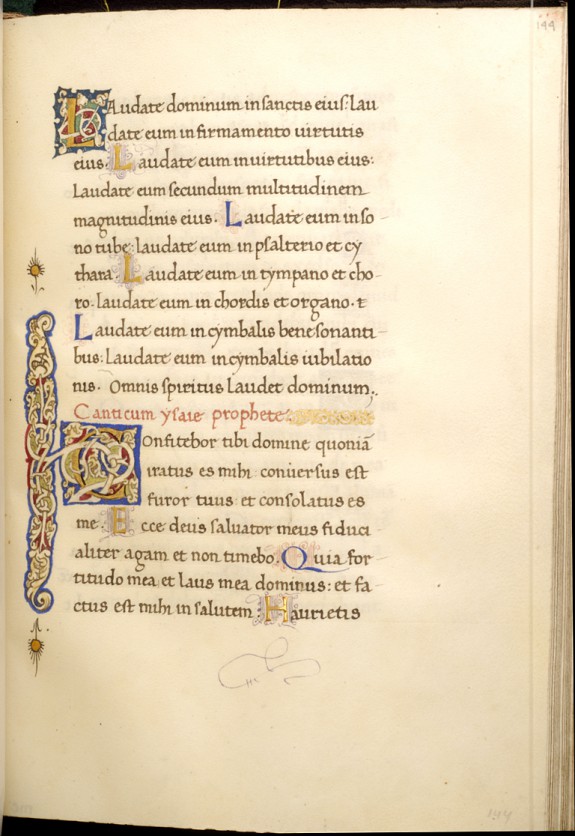 144
LAudate dominum in sanctis eius: lau
date eum in firmamento uirtutis
eius. Laudate eum in uirtutibus eius:
Laudate eum secundum multitudinem
magnitudinis eius. Laudate eum in so
no tube: laudate eum in psalterio et cy
thara. Laudate eum in tympano et cho-
ro. laudate eum in chordis et organo. t
Laudate eum in cymbalis bene sonanti-
bus: Laudate eum in cymbalis iubilatio
nis. Omnis spiritus laudet dominum.
Canticum ysaie prophete:
Confitebor tibi domine quoniā
iratus es mihi: conuersus est
furor tuus: et consolatus es
me. Ecce deus saluator meus fiduci
aliter agam et non timebo. Quia for
titudo mea et laus mea dominus: et fa-
ctus est mihi in salutem. Haurietis
144